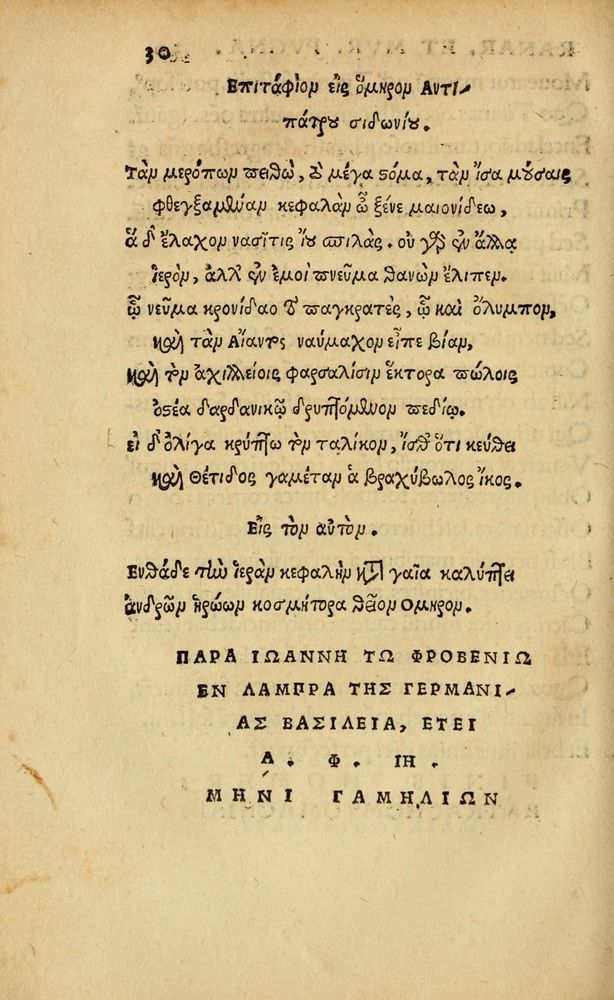 30
Επιτάφιον εἰς ὅμηρον Αντι-
πάτρου σιδωνίου.
Τὰν μερόπων πειθὼ, τὸ μέγα στόμα, τὰν ἴσα μούσαις
φθεγξαμέναν κεφαλὰν ὦ ξένε μαιονίδεω,
ἅ δ' ἔλαχον νασῖτις ἴου σπιλὰς. οὐ γὰρ ἐν ἄλλᾳ
ἱερὸν, ἀλλ' ἐν ἐμοὶ πνεῦμα θανὼν ἔλιπεν.
ᾧ νεῦμα κρονίδαο τὸ παγκρατές, ᾧ καὶ ὄλυμπον,
καὶ τὰν Αἴαντος ναύμαχον εἶπε βίαν,
καὶ τὸν ἀχιλλείοις φαρσαλίσιν ἕκτορα πώλοις
ὀστέα δαρδανικῷ δρυπτόμενον πεδίῳ.
ει δ' ὀλίγα κρύπτω τὸν ταλίκον, ἴσθ' ὅτι κεύθει
καὶ Θέτιδος γαμέταν ἁ βραχύβωλος ἵκος.
Εἰς τὸν αὐτὸν.
Ενθάδε τὴν ἱερὰν κεφαλὴν κατὰ γαῖα καλύπτει
ἀνδρῶν ἡρώων κοσμήτορα θεῖον Ομηρον.
ΠΑΡΑ ΙΩΑΝΝΗ ΤΩ ΦΡΟΒΕΝΙΩ
ΕΝ ΛΑΜΠΡΑ ΤΗΣ ΓΕΡΜΑΝΙ-
ΑΣ ΒΑΣΙΛΕΙΑ, ΕΤΕΙ
͵Α. Φ. ΙΗ.
ΜΗΝΙ ΓΑΜΗΛΙΩΝ